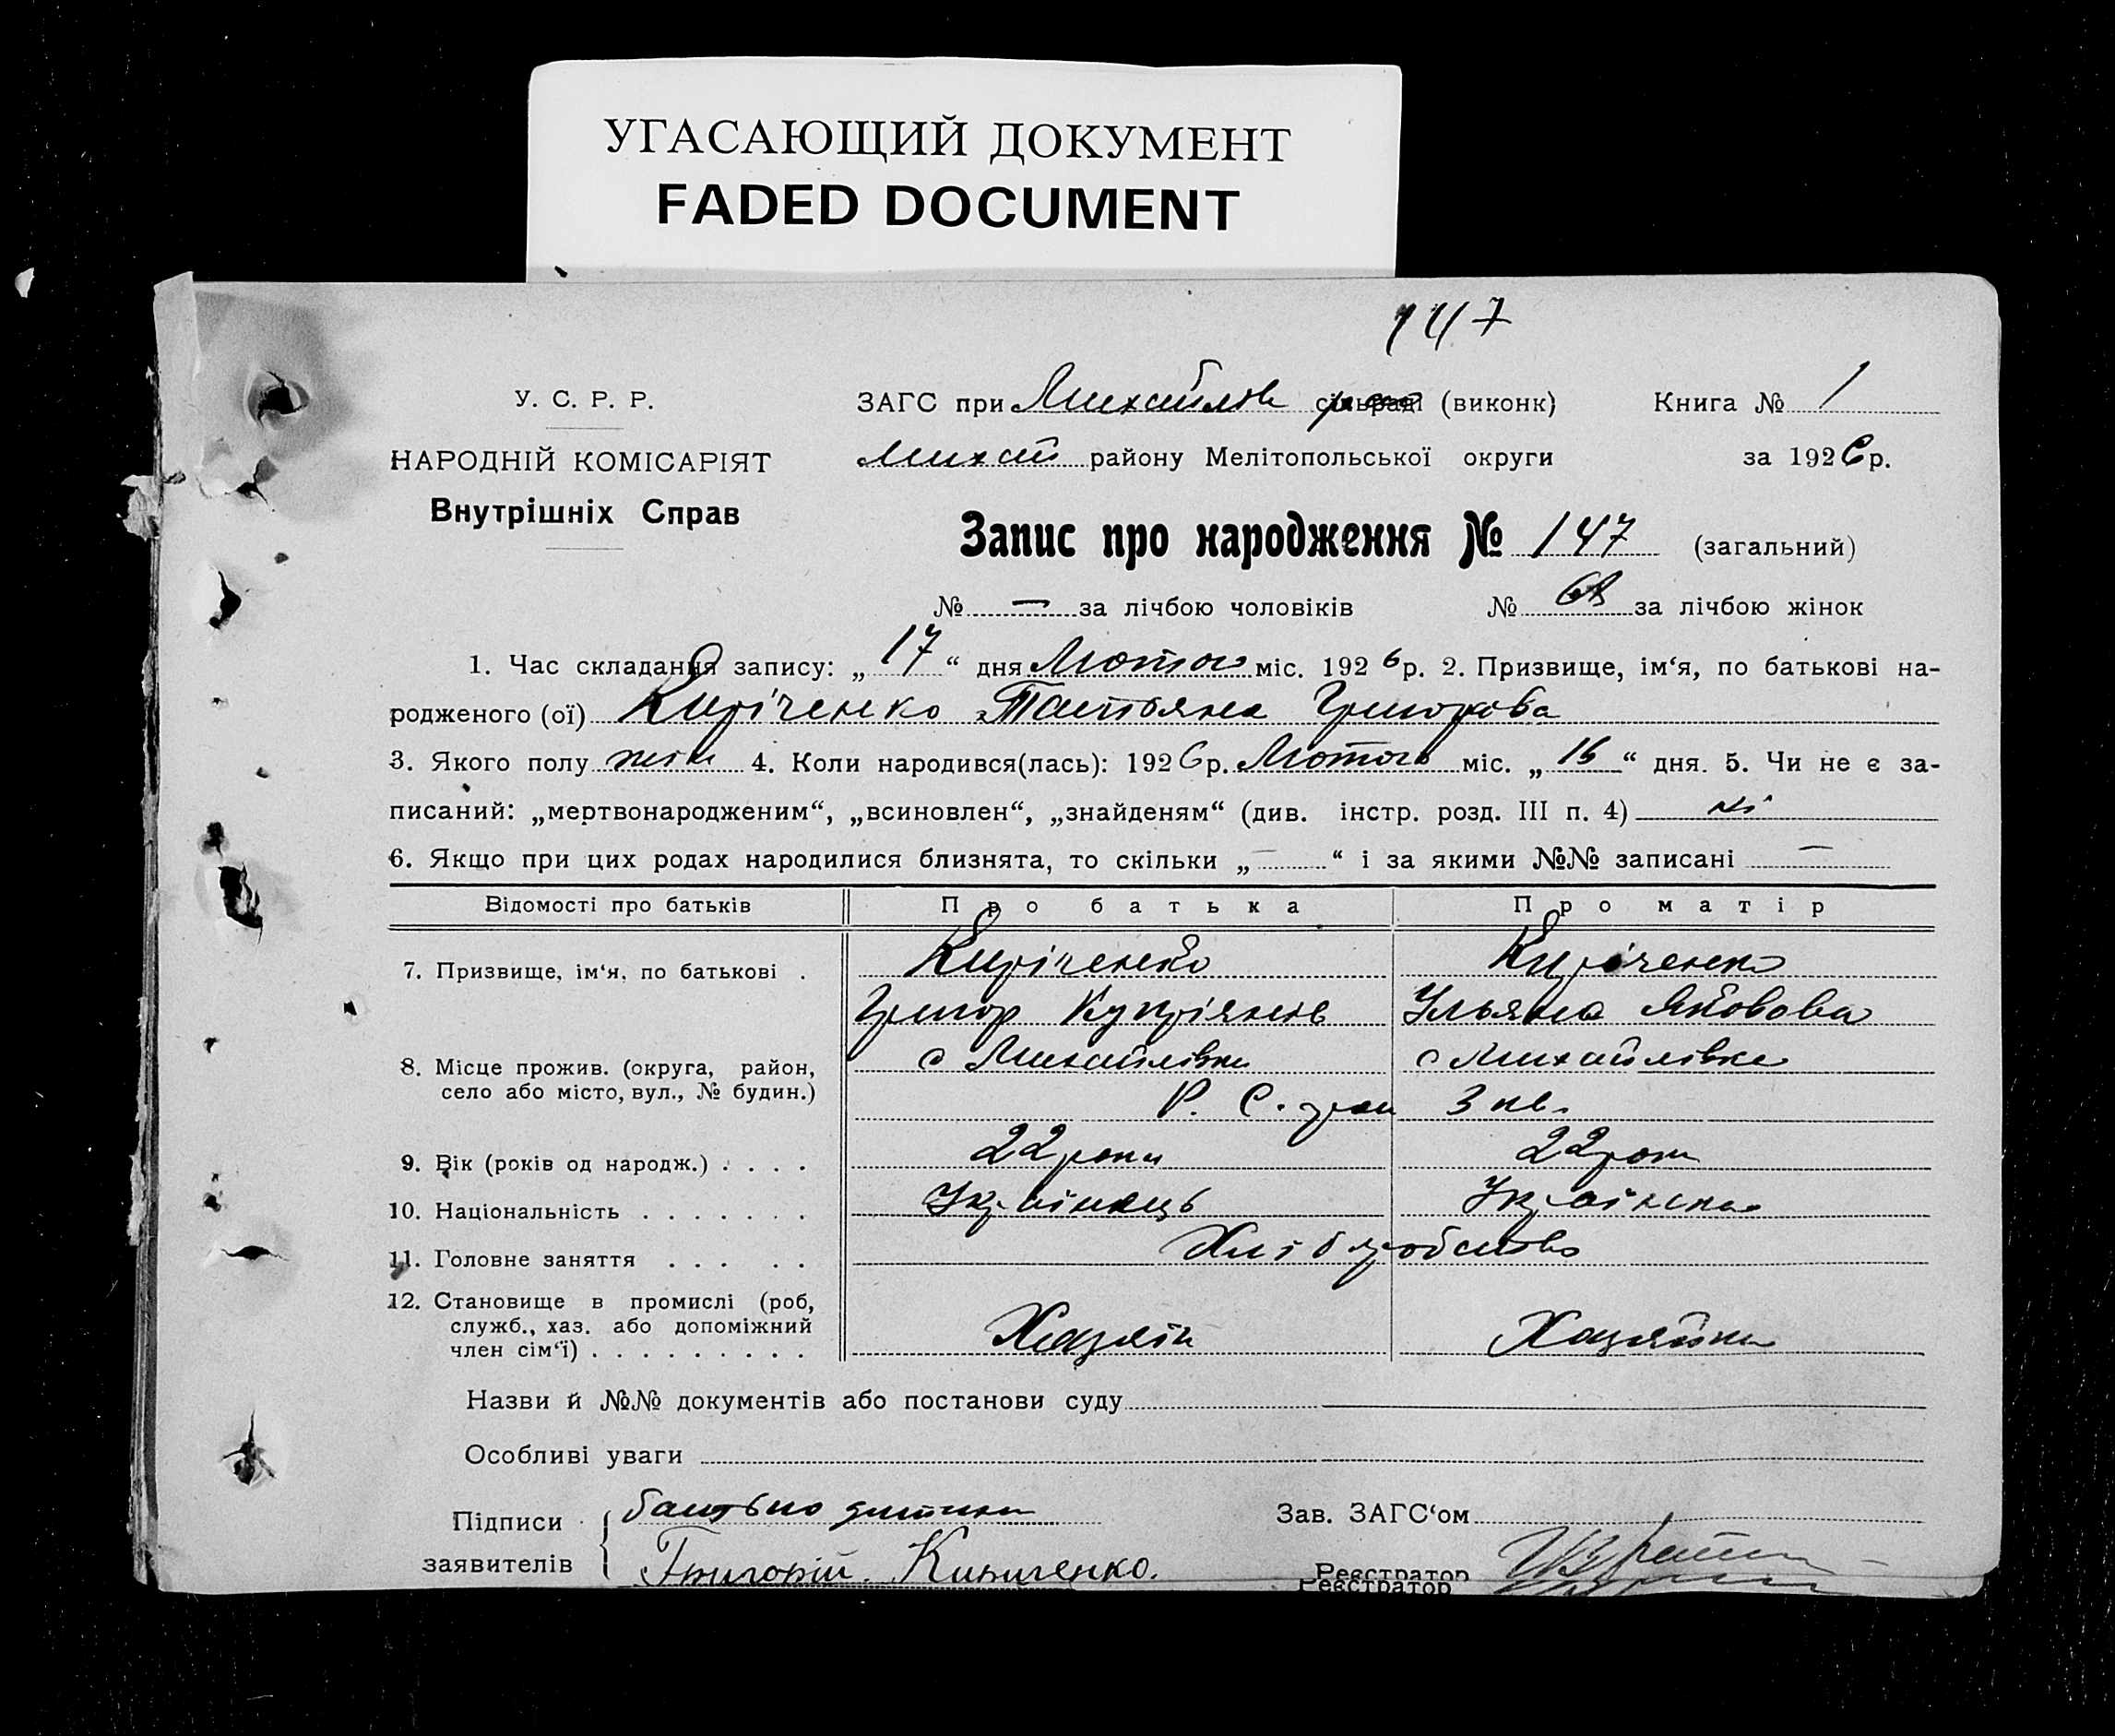 УГАСАЮЩИЙ ДОКУМЕНТ
FADED DOCUMENT
147
У. С. Р. Р.
НАРОДНІЙ КОМІСАРІЯТ
Внутрішніх Справ
ЗАГС при Михайлов сільраді (виконк)
Книга № 1
Михай району Мелітопольської округи
за 1926 р.
Запис про народження № 147 (загальний)
№ — за лічбою чоловіків № 68 за лічбою жінок
1. Час складання запису: „ 17 “ дня Лютого міс. 1926 р. 2. Призвище, ім‘я, по батькові на-
родженого (ої) Кіріченко Татьяна Григорова
3. Якого полу жін 4. Коли народився(лась): 1926 р. Лютого міс. „ 16 “ дня. 5. Чи не є за-
писаний: „мертвонародженим“, „всиновлен“, „знайденям“ (див. інстр. розд. III п. 4) ні
6. Якщо при цих родах народилися близнята, то скільки „ — “ і за якими №№ записані —
Відомості про батьків Про батька Про матір
7. Призвище, ім‘я, по батькові . Киріченко Киріченко
Григор Купріянів Ульяна Яковова
8. Місце прожив. (округа, район, с Михайлівка с Михайлівка
село або місто, вул., № будин.) Р. С. 3 кв.
9. Вік (років од народж.) . . . . 22 роки 22 роки
10. Національність . . . . . . . Українець Українка
11. Головне заняття . . . . . Хліборобство
12. Становище в промислі (роб,
служб., хаз. або допоміжний
член сім‘ї) . . . . . . . . . Хазяін Хазяйка
Назви й №№ документів або постанови суду
Особливі уваги
Підписи заявителів { батько дитини
Григорій Кириченко.
Зав. ЗАГС‘ом
Реєстратор
Реєстратор